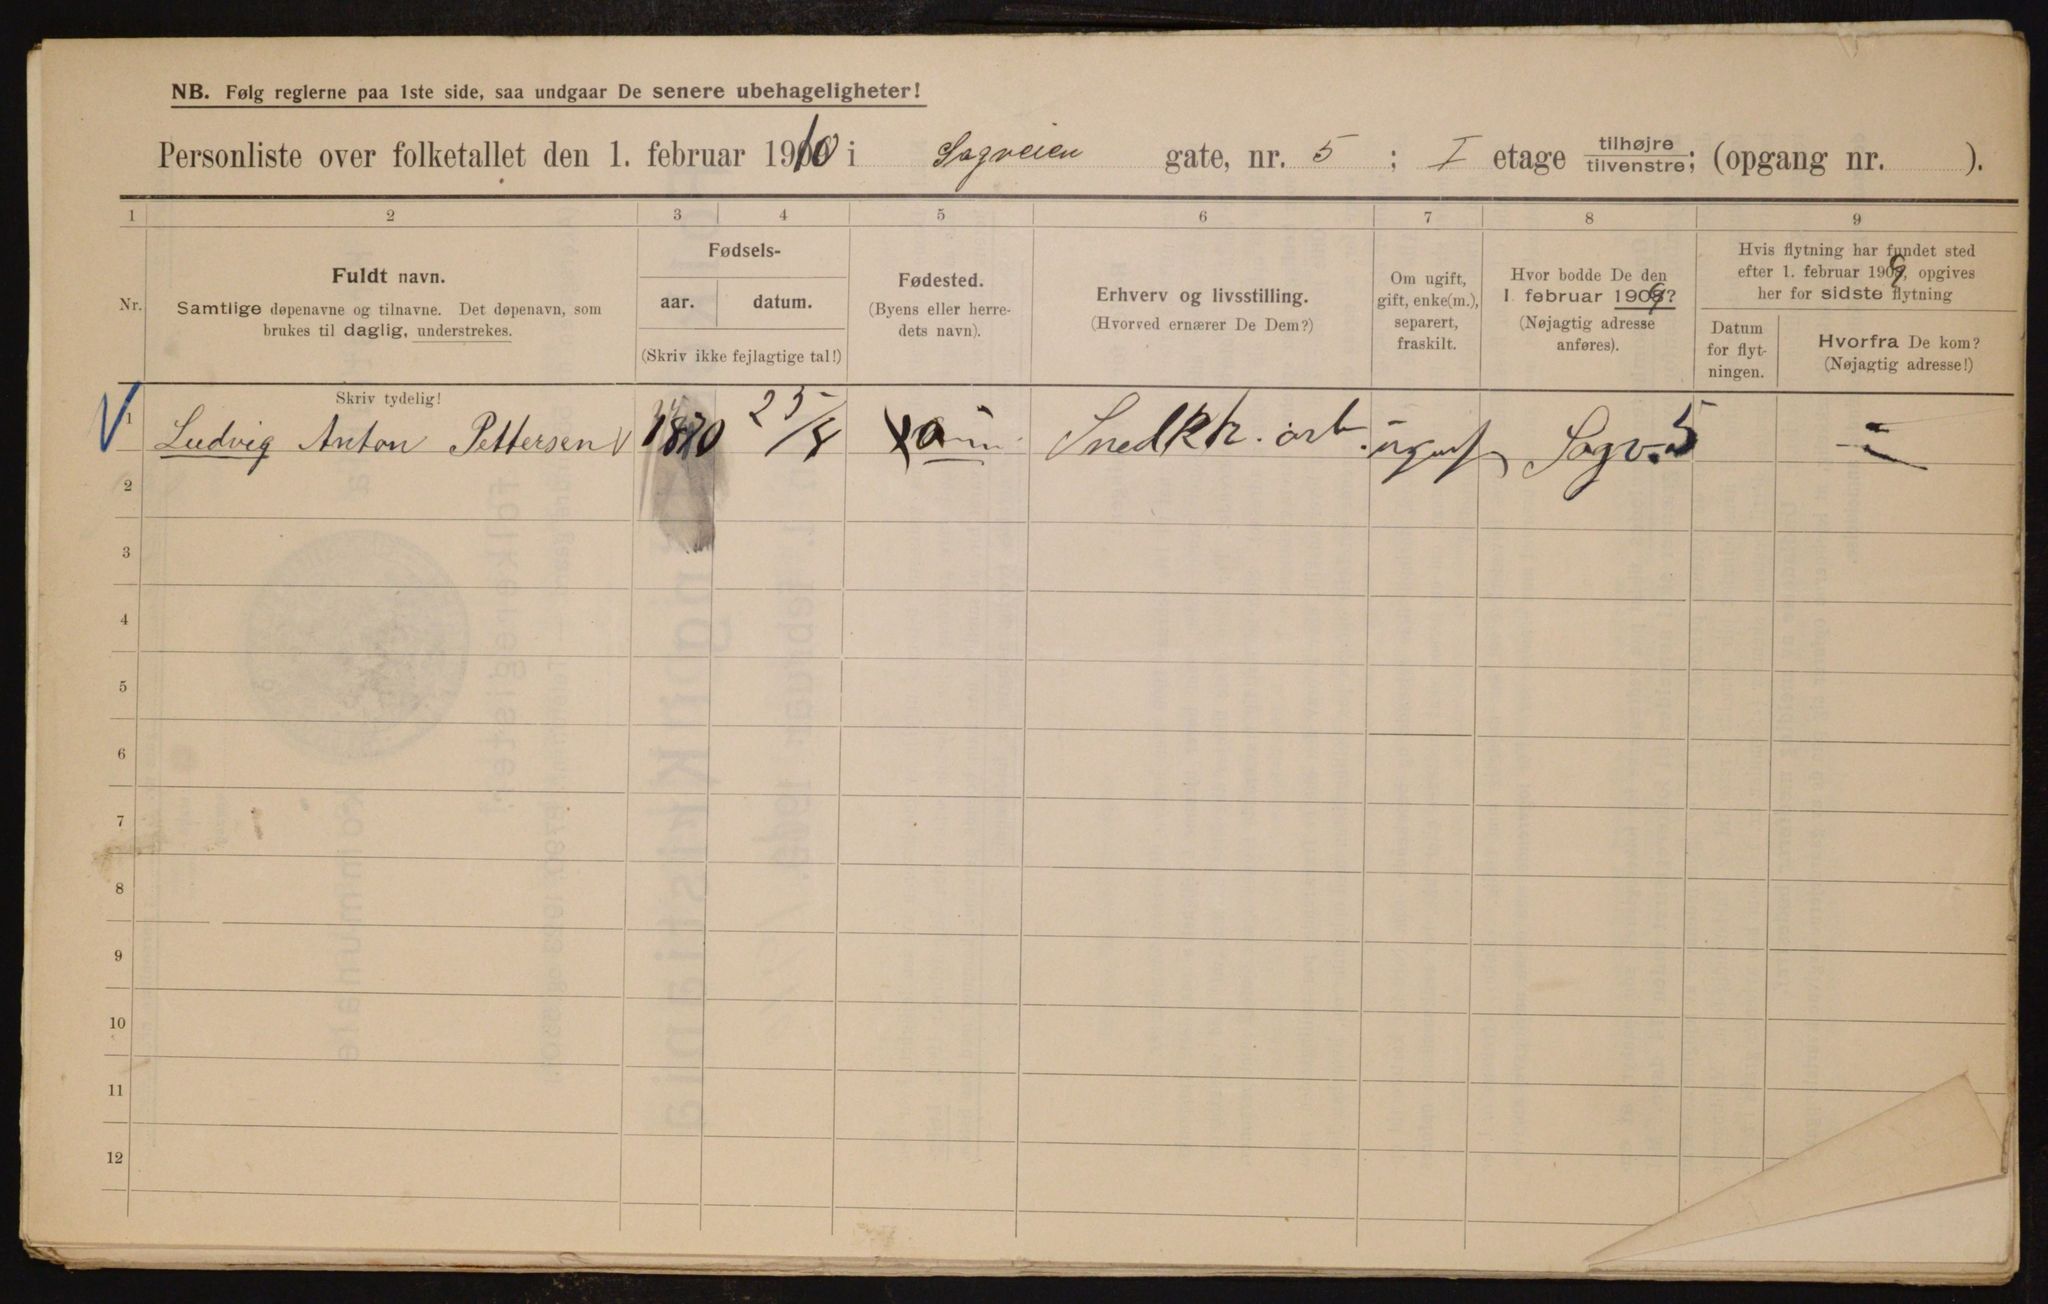 NB. Følg reglerne paa 1ste side, saa undgaar De senere ubehageligheter!
Personliste over folketallet den 1. februar 1910 i Sagveien gate, nr. 5 ; I etage tilhøjre tilvenstre; (opgang nr. ).
1 2 3 4 5 6 7 8 9
Nr.
Fuldt navn.
Samtlige døpenavne og tilnavne. Det døpenavn, som
brukes til daglig, understrekes.
Fødsels-
aar. datum.
(Skriv ikke fejlagtige tal!)
Fødested.
(Byens eller herre-
dets navn).
Erhverv og livsstilling.
(Hvorved ernærer De Dem?)
Om ugift,
gift, enke(m.),
separert,
fraskilt.
Hvor bodde De den
1. februar 1909?
(Nøjagtig adresse
anføres).
Hvis flytning har fundet sted
efter 1. februar 1909, opgives
her for sidste flytning
Datum
for flyt-
ningen.
Hvorfra De kom?
(Nøjagtig adresse!)
Skriv tydelig!
1 Ludvig Anton Pettersen 1870 25/8 arb. ugift Sagv. 5
2
3
4
5
6
7
8
9
10
11
12